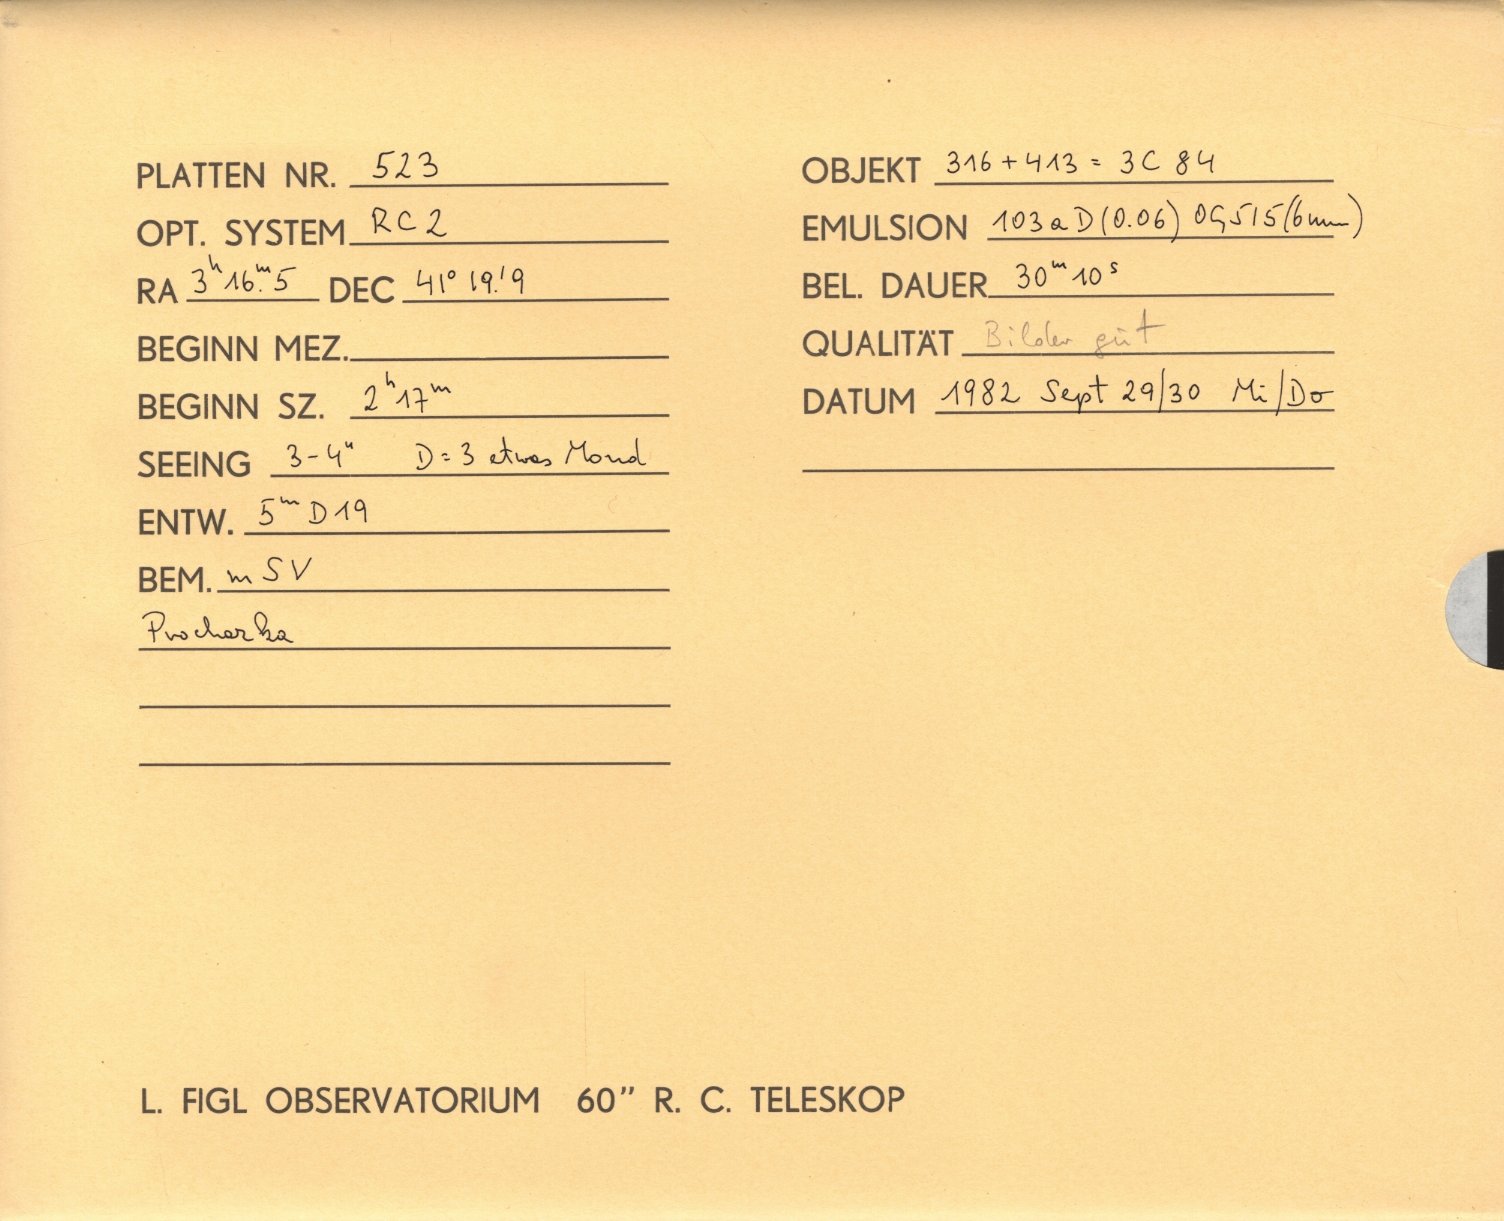 PLATTEN NR. 523
OPT. SYSTEM RC2
RA 3ʰ16ᵐ.5 DEC 41° 19.'9
BEGINN MEZ.
BEGINN SZ. 2ʰ17ᵐ
SEEING 3-4" D=3 etwas Mond
ENTW. 5ᵐ D19
BEM. m SV
Prochazka
OBJEKT 316+413 = 3C 84
EMULSION 103aD(0.06) OG515(6mm)
BEL. DAUER 30ᵐ10ˢ
QUALITÄT Bilder gut
DATUM 1982 Sept 29/30 Mi/Do
L. FIGL OBSERVATORIUM 60" R. C. TELESKOP